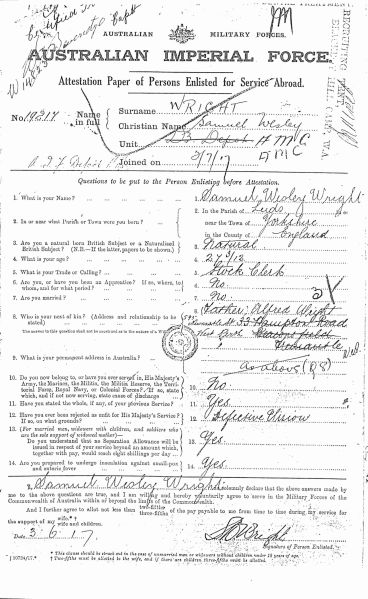 AUSTRALIAN MILITARY FORCES.
AUSTRALIAN IMPERIAL FORCE.
Attestation Paper of Persons Enlisted for Service Abroad.
No. 19217 Name in full Surname WRIGHT
Christian Name Samuel Wesley
Unit
Joined on 3/7/17
Questions to be put to the Person Enlisting before Attestation.
1. What is your Name? 1. Samuel Wesley Wright
2. In or near what Parish or Town were you born? 2. In the Parish of Leeds
near the Town of Yorkshire
in the County of England
3. Are you a natural born British Subject or a Naturalised British Subject? (N.B.—If the latter, papers to be shown.) 3. Natural
4. What is your age? 4. 27
5. What is your Trade or Calling? 5. Stock Clerk
6. Are you, or have you been an Apprentice? If so, where, to whom, and for what period? 6. No
7. Are you married? 7. No
8. Who is your next of kin? (Address and relationship to be stated) 8. Father, Alfred Wright
33 Hampton Road
Fremantle
9. What is your permanent address in Australia? 9. as above (Q8)
10. Do you now belong to, or have you ever served in, His Majesty's Army, the Marines, the Militia, the Militia Reserve, the Territorial Force, Royal Navy, or Colonial Forces? If so, state which, and if not now serving, state cause of discharge 10. No
11. Have you stated the whole, if any, of your previous Service? 11. Yes
12. Have you ever been rejected as unfit for His Majesty's Service? If so, on what grounds? 12. Defective Vision
13. (For married men, widowers with children, and soldiers who are the sole support of widowed mother)—
Do you understand that no Separation Allowance will be issued in respect of your service beyond an amount which, together with pay, would reach eight shillings per day 13. Yes
14. Are you prepared to undergo inoculation against small-pox and enteric fever 14. Yes
I, Samuel Wesley Wright solemnly declare that the above answers made by
me to the above questions are true, and I am willing and hereby voluntarily agree to serve in the Military Forces of the
Commonwealth of Australia within or beyond the limits of the Commonwealth.
And I further agree to allot not less than two-fifths three-fifths of the pay payable to me from time to time during my service for
the support of my wife.* wife and children.
Date 3.6.17. S W Wright
Signature of Person Enlisted.
* This clause should be struck out in the case of unmarried men or widowers without children under 18 years of age.
† Two-fifths must be allotted to the wife, and if there are children three-fifths must be allotted.